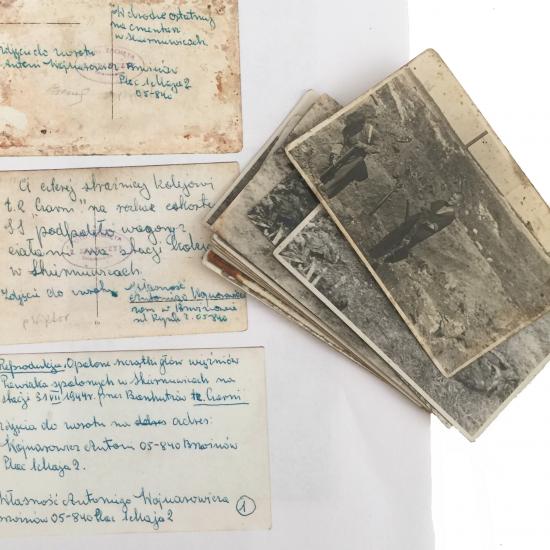 W drodze ostatniej
na cmentarz
w Skierniewicach.
zdjęcie do zwrotu
Antoni Wojnarowicz Brwinów
Plac 1 Maja 2
05-840
"Ci czterej strażnicy kolejowi
t.z Czarni" na rozkaz
SS podpalili wagony z
ciałami na stacji kolej.
w Skierniewicach.
Zdjęcie do zwrotu Własność
Antoniego Wojnarowicza
w Brwinowie
05-840
Reprodukcja. Opalone szczątki głów więźniów
Pawiaka spalonych w Skierniewicach na
stacji 31 VII 1944r. przez Banhschutzów tz. Czarni
zdjęcia do zwrotu na adres:
Wojnarowicz Antoni 05-840 Brwinów
Plac 1 Maja 2.
Własność Antoniego Wojnarowicza
Brwinów 05-840 Plac 1 Maja 2
1